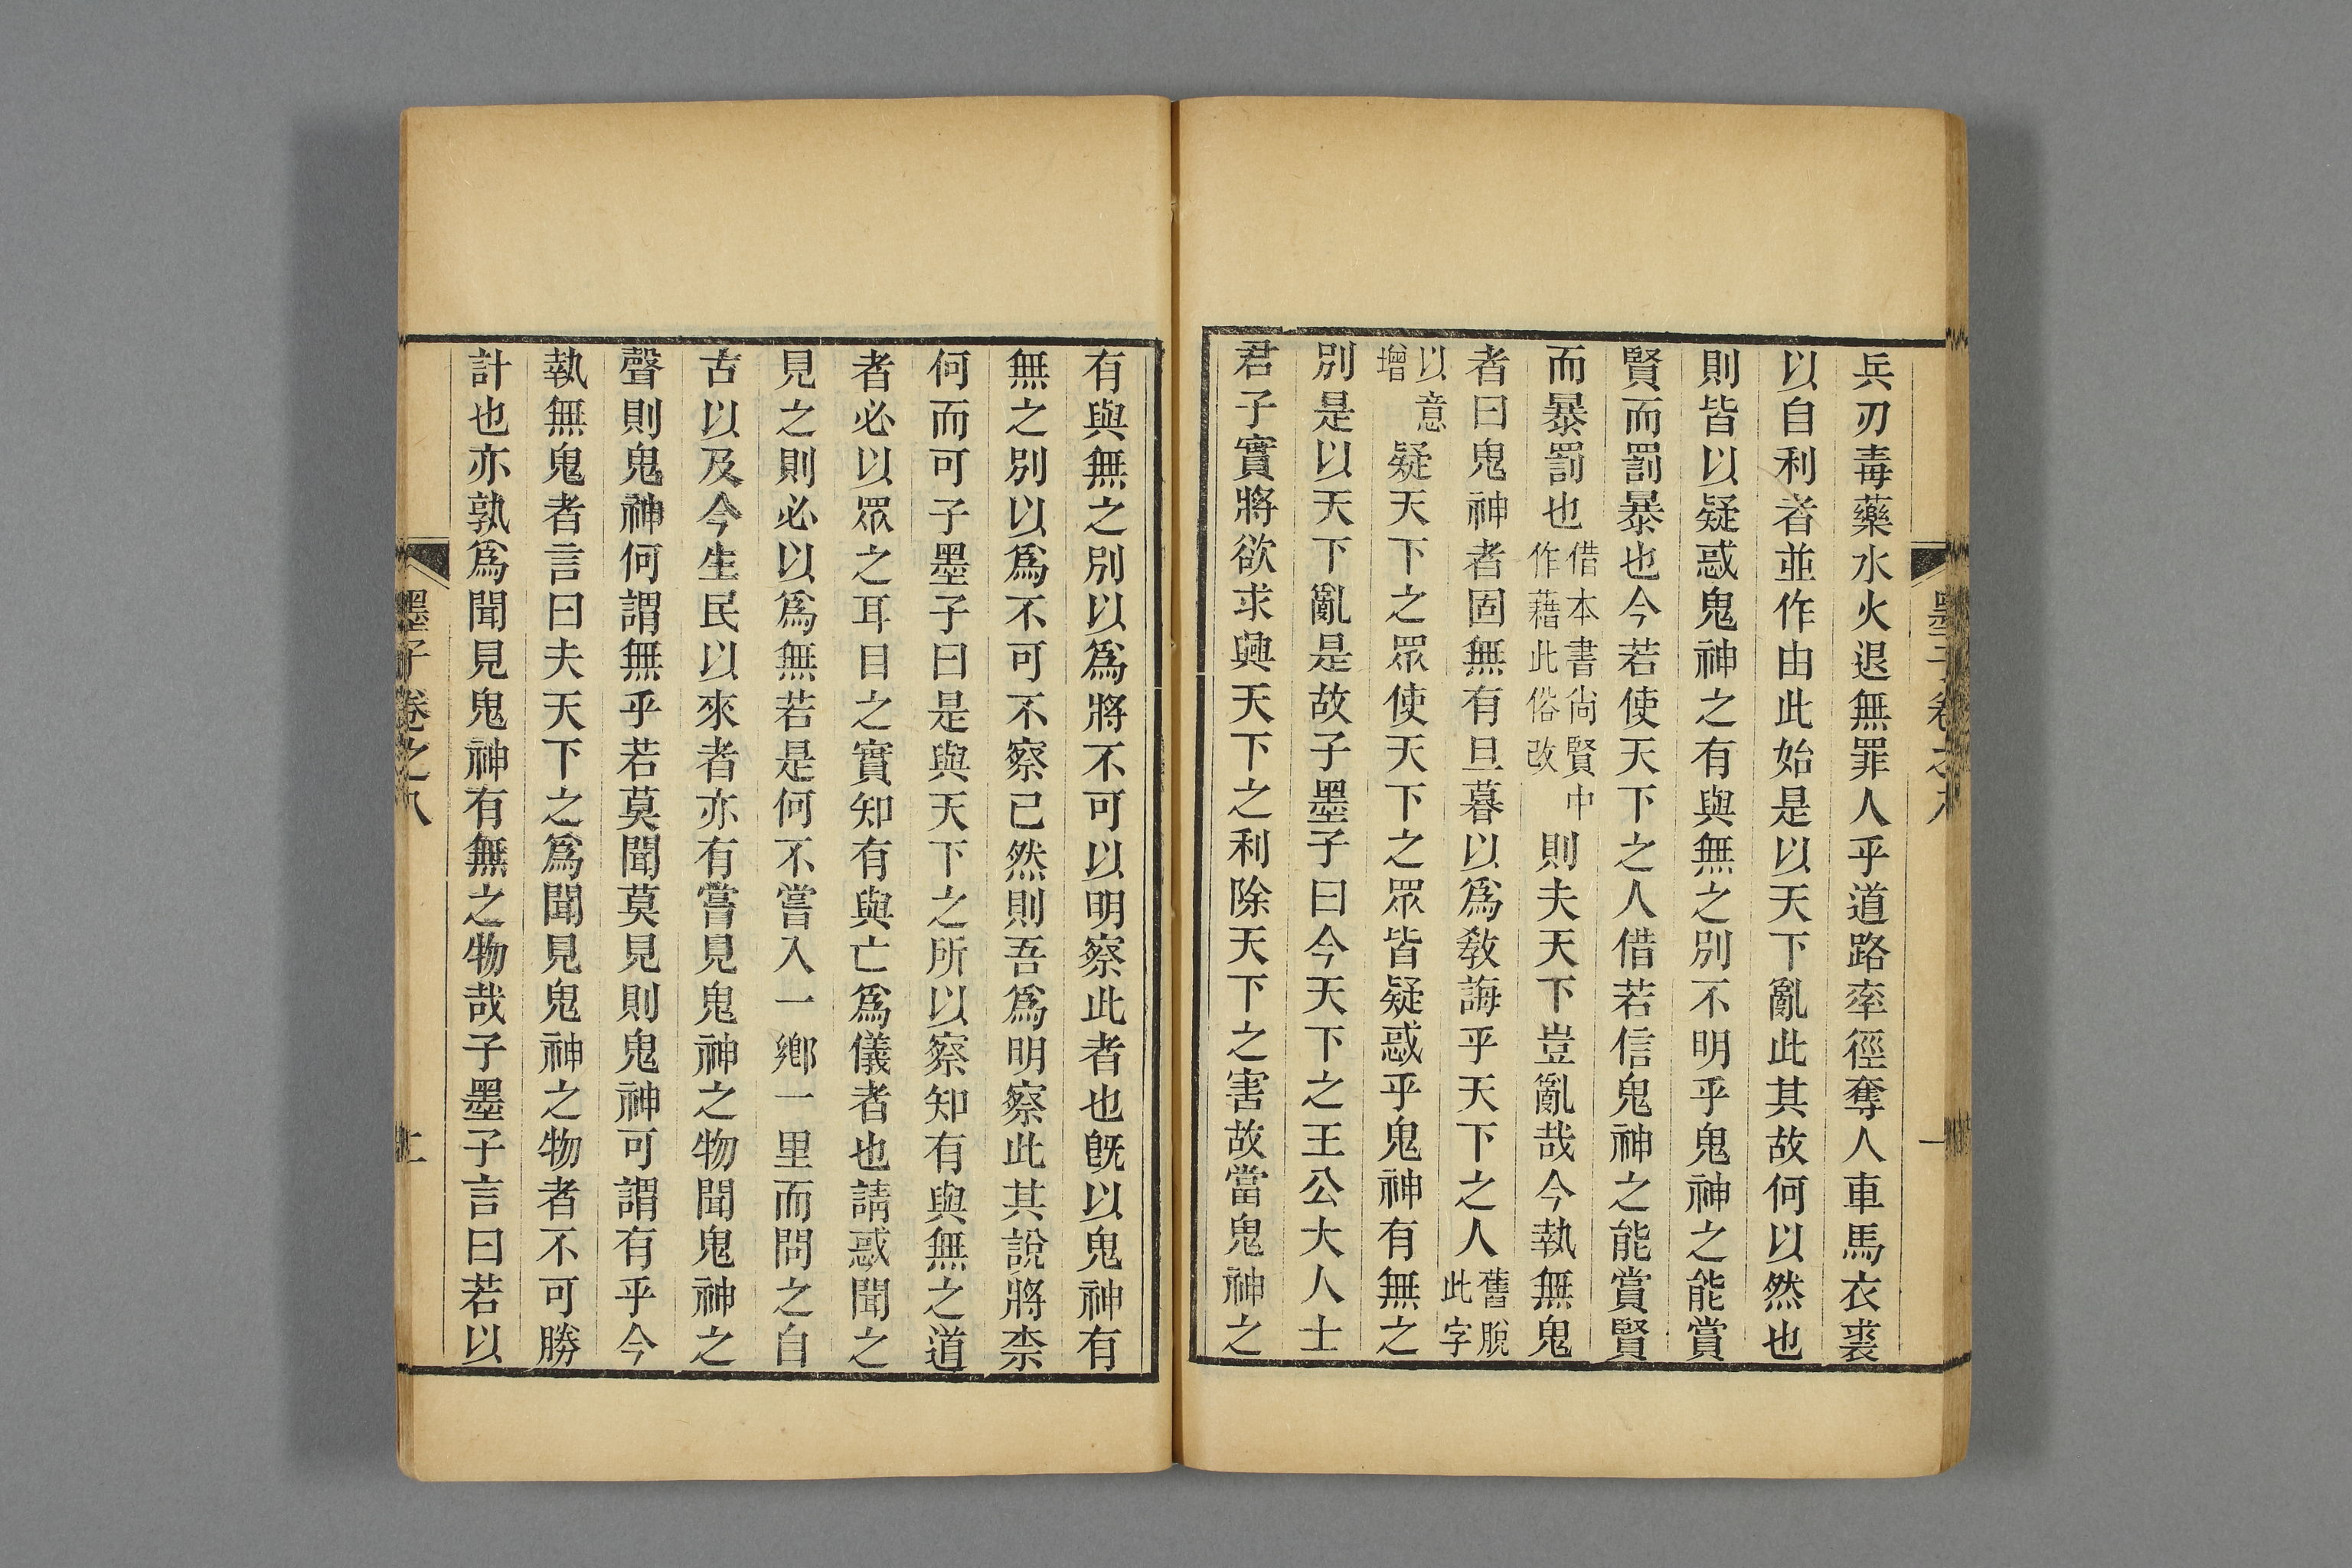 兵刃毒藥水火退無罪人乎道路率徑奪人車馬衣裘
以自利者並作由此始是以天下亂此其故何以然也
則皆以疑惑鬼神之有與無之別不明乎鬼神之能賞
賢而罰暴也今若使天下之人借若信鬼神之能賞賢
而暴罰也借本書尚賢中作藉此俗改則夫天下豈亂哉今執無鬼
者曰鬼神者固無有旦暮以爲教誨乎天下之人舊脫此字
以意增疑天下之眾使天下之眾皆疑惑乎鬼神有無之
別是以天下亂是故子墨子曰今天下之王公大人士
君子實將欲求興天下之利除天下之害故當鬼神之
有與無之別以爲將不可以明察此者也旣以鬼神有
無之別以爲不可不察已然則吾爲明察此其說將柰
何而可子墨子曰是與天下之所以察知有與無之道
者必以眾之耳目之實知有與亡爲儀者也請惑聞之
見之則必以爲無若是何不嘗入一鄉一里而問之自
古以及今生民以來者亦有嘗見鬼神之物聞鬼神之
聲則鬼神何謂無乎若莫聞莫見則鬼神可謂有乎今
執無鬼者言曰夫天下之爲聞見鬼神之物者不可勝
計也亦孰爲聞見鬼神有無之物哉子墨子言曰若以
墨子卷之八